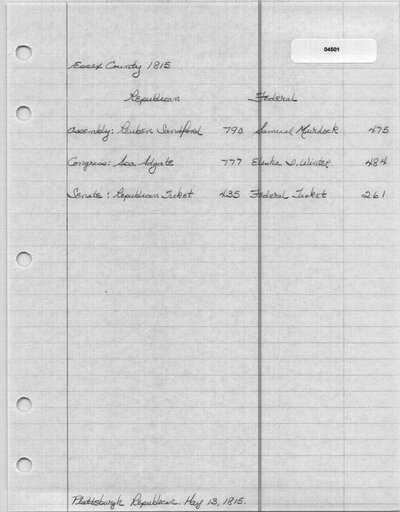 04501
Essex County 1815
Republican Federal
Assembly: Reuben Sanford 790 Samuel Murdock 475
Congress: Asa Adgate 777 Elisha I. Winter 484
Senate: Republican Ticket 435 Federal Ticket 261
Plattsburgh Republican. May 13, 1815.